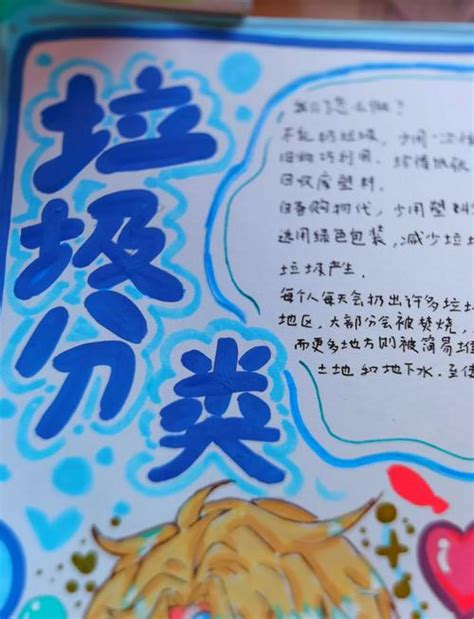 垃圾分类
我们怎么做?
不乱扔垃圾,少用一次性
旧物巧利用,珍惜纸张
回收废塑料.
自备购物代,少用塑料
选用绿色包装,减少垃圾
垃圾产生.
每个人每天会扔出许多垃圾
地区,大部分会被焚烧
而更多地方则被简易堆
土地和地下水,至使